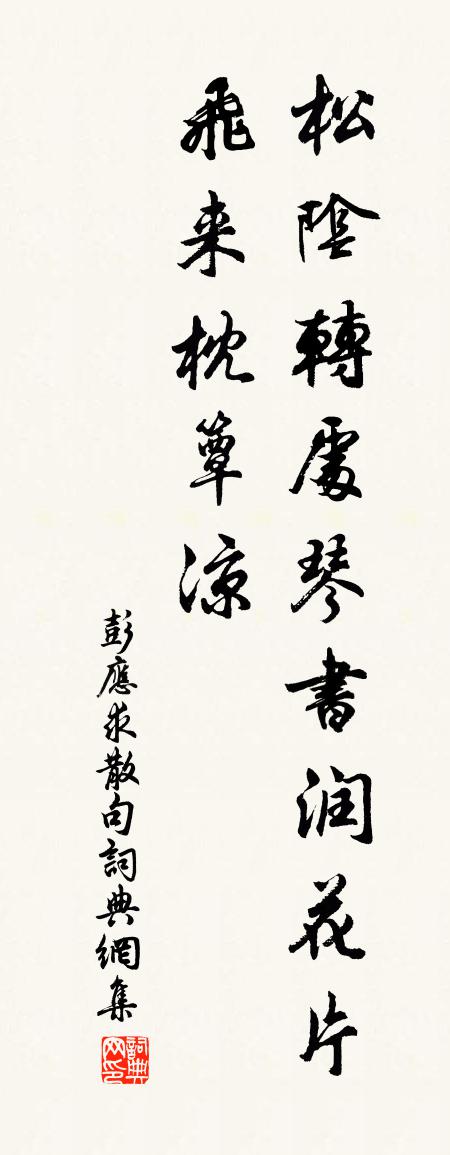 松陰轉處琴書润花片
飛来枕簟涼
彭應求散句詞典網集
詞典网印